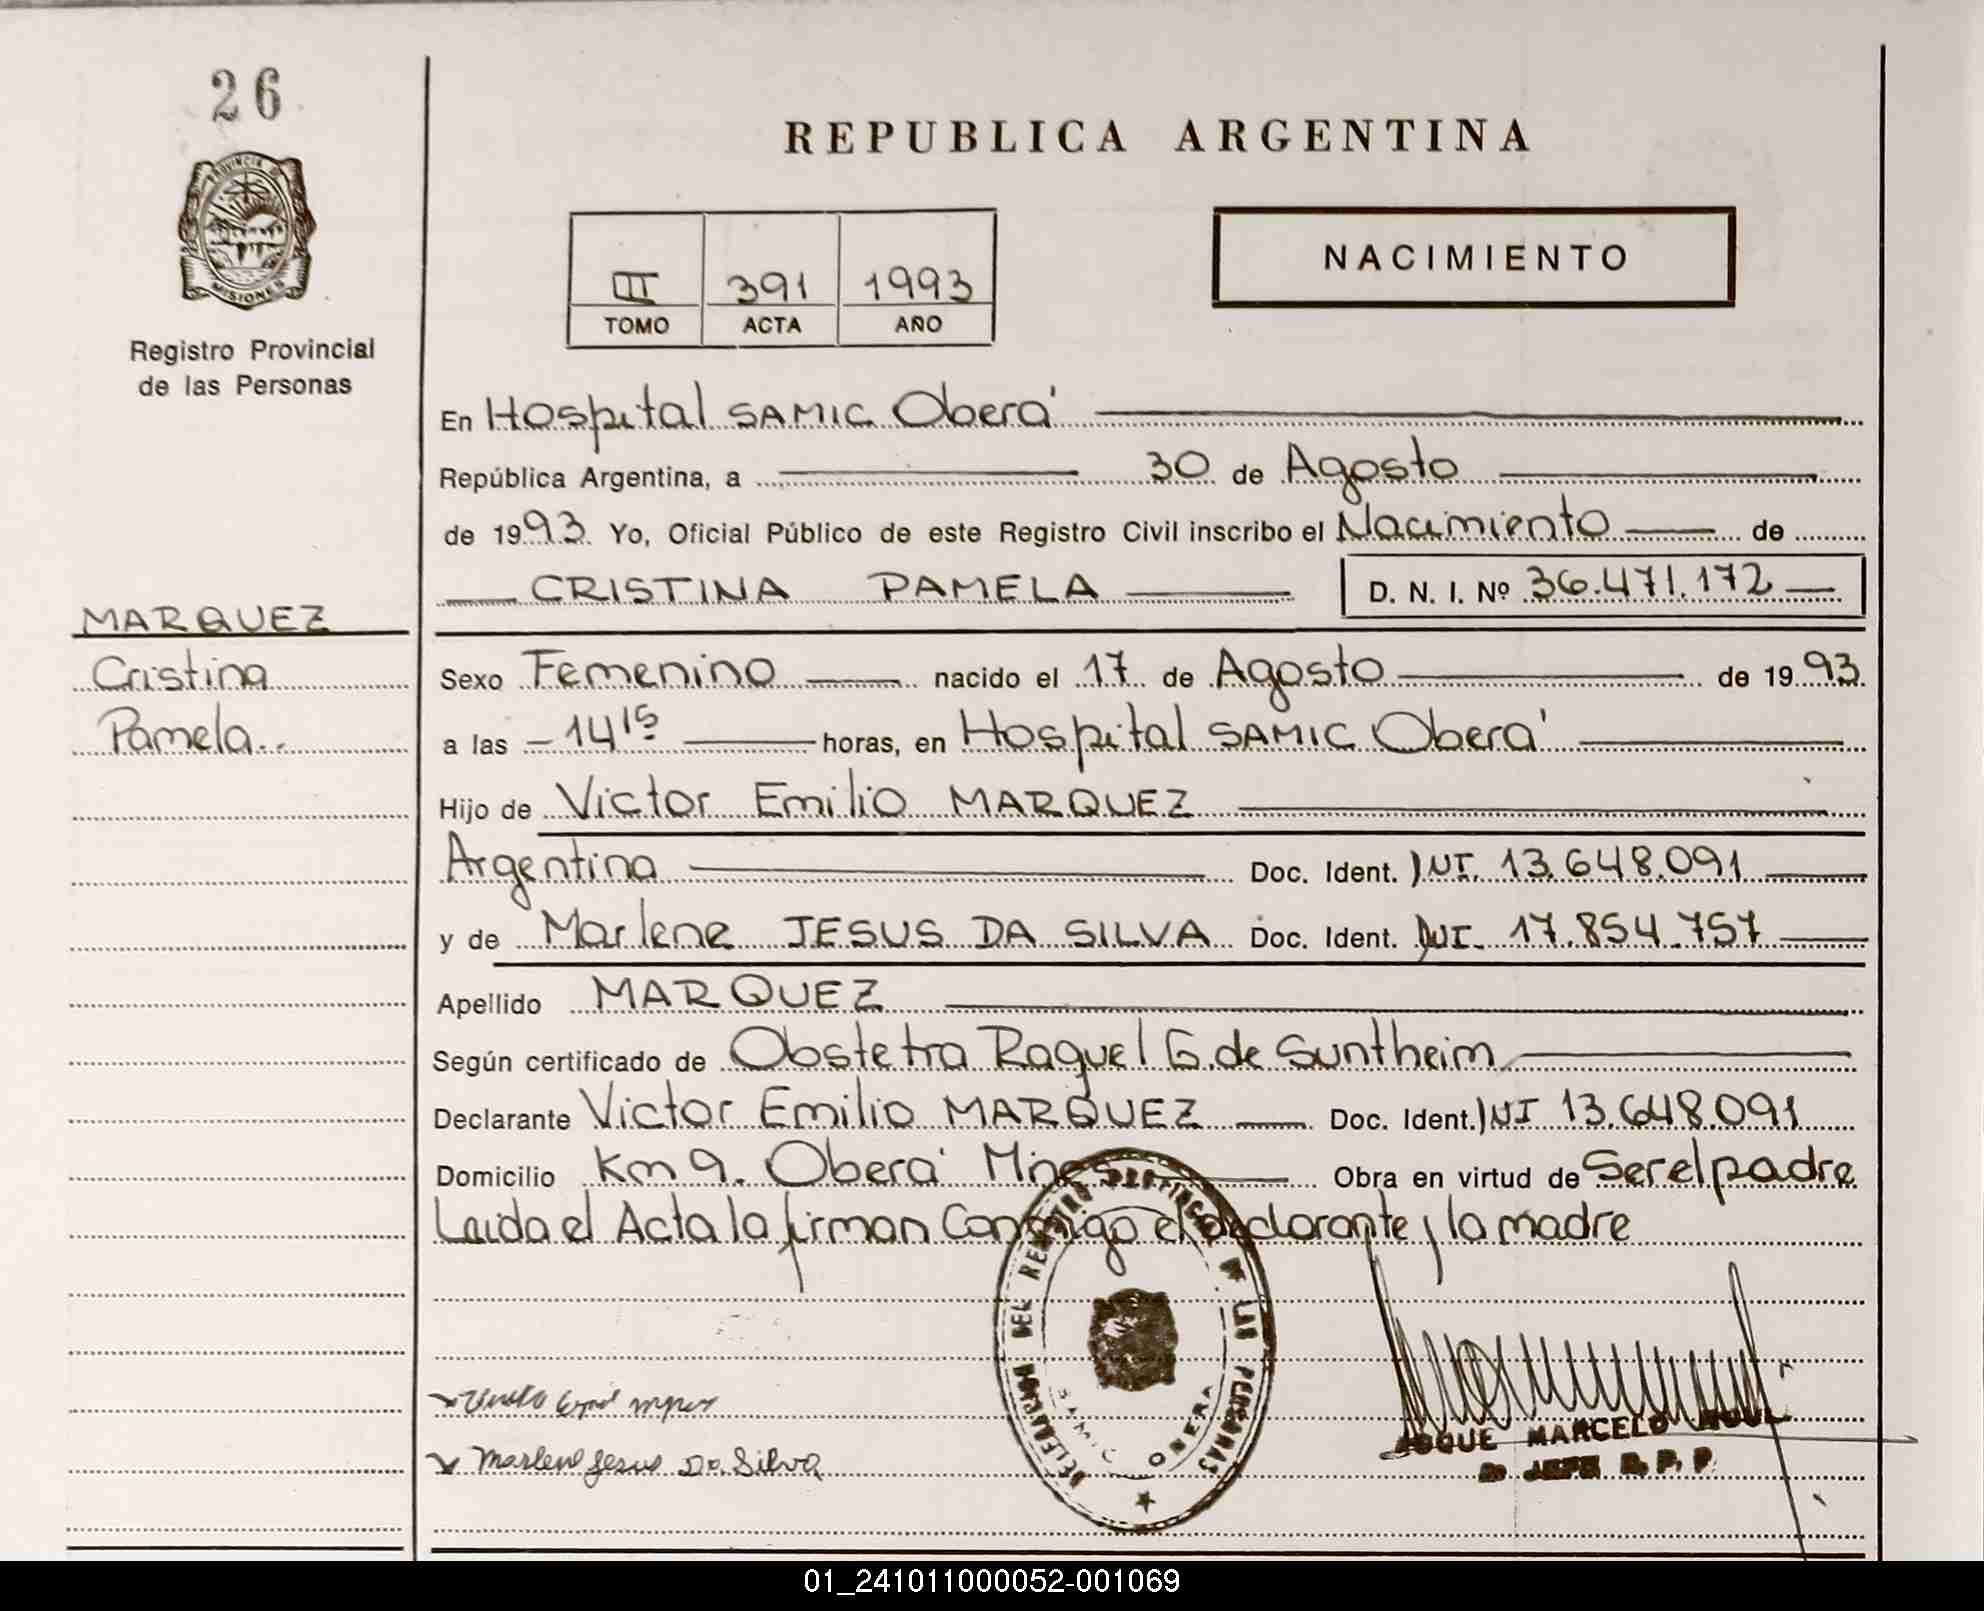 26
PROVINCIA DE
MISIONES
Registro Provincial
de las Personas
REPUBLICA ARGENTINA
III 391 1993
TOMO ACTA AÑO
NACIMIENTO
En Hospital SAMIC Oberá
República Argentina, a 30 de Agosto
de 1993. Yo, Oficial Público de este Registro Civil inscribo el Nacimiento de
CRISTINA PAMELA D. N. I. Nº 36.471.172
MARQUEZ
Cristina
Pamela..
Sexo Femenino nacido el 17 de Agosto de 1993
a las 14 15 horas, en Hospital SAMIC Oberá
Hijo de Victor Emilio MARQUEZ
Argentina Doc. Ident. DNI. 13.648.091
y de Marlene JESUS DA SILVA Doc. Ident. DNI. 17.854.757
Apellido MARQUEZ
Según certificado de Obstetra Raquel G. de Suntheim
Declarante Victor Emilio MARQUEZ Doc. Ident. DNI 13.648.091
Domicilio Km 9. Oberá Mnes Obra en virtud de Ser el padre
Leida el Acta la firman Conmigo el declarante y la madre
DELEGACION DEL REGISTRO PROVINCIAL DE LAS PERSONAS
SAMIC OBERA
Marlene Jesus Da Silva
ROQUE MARCELO
2o JEFE R. P. P.
01_241011000052-001069